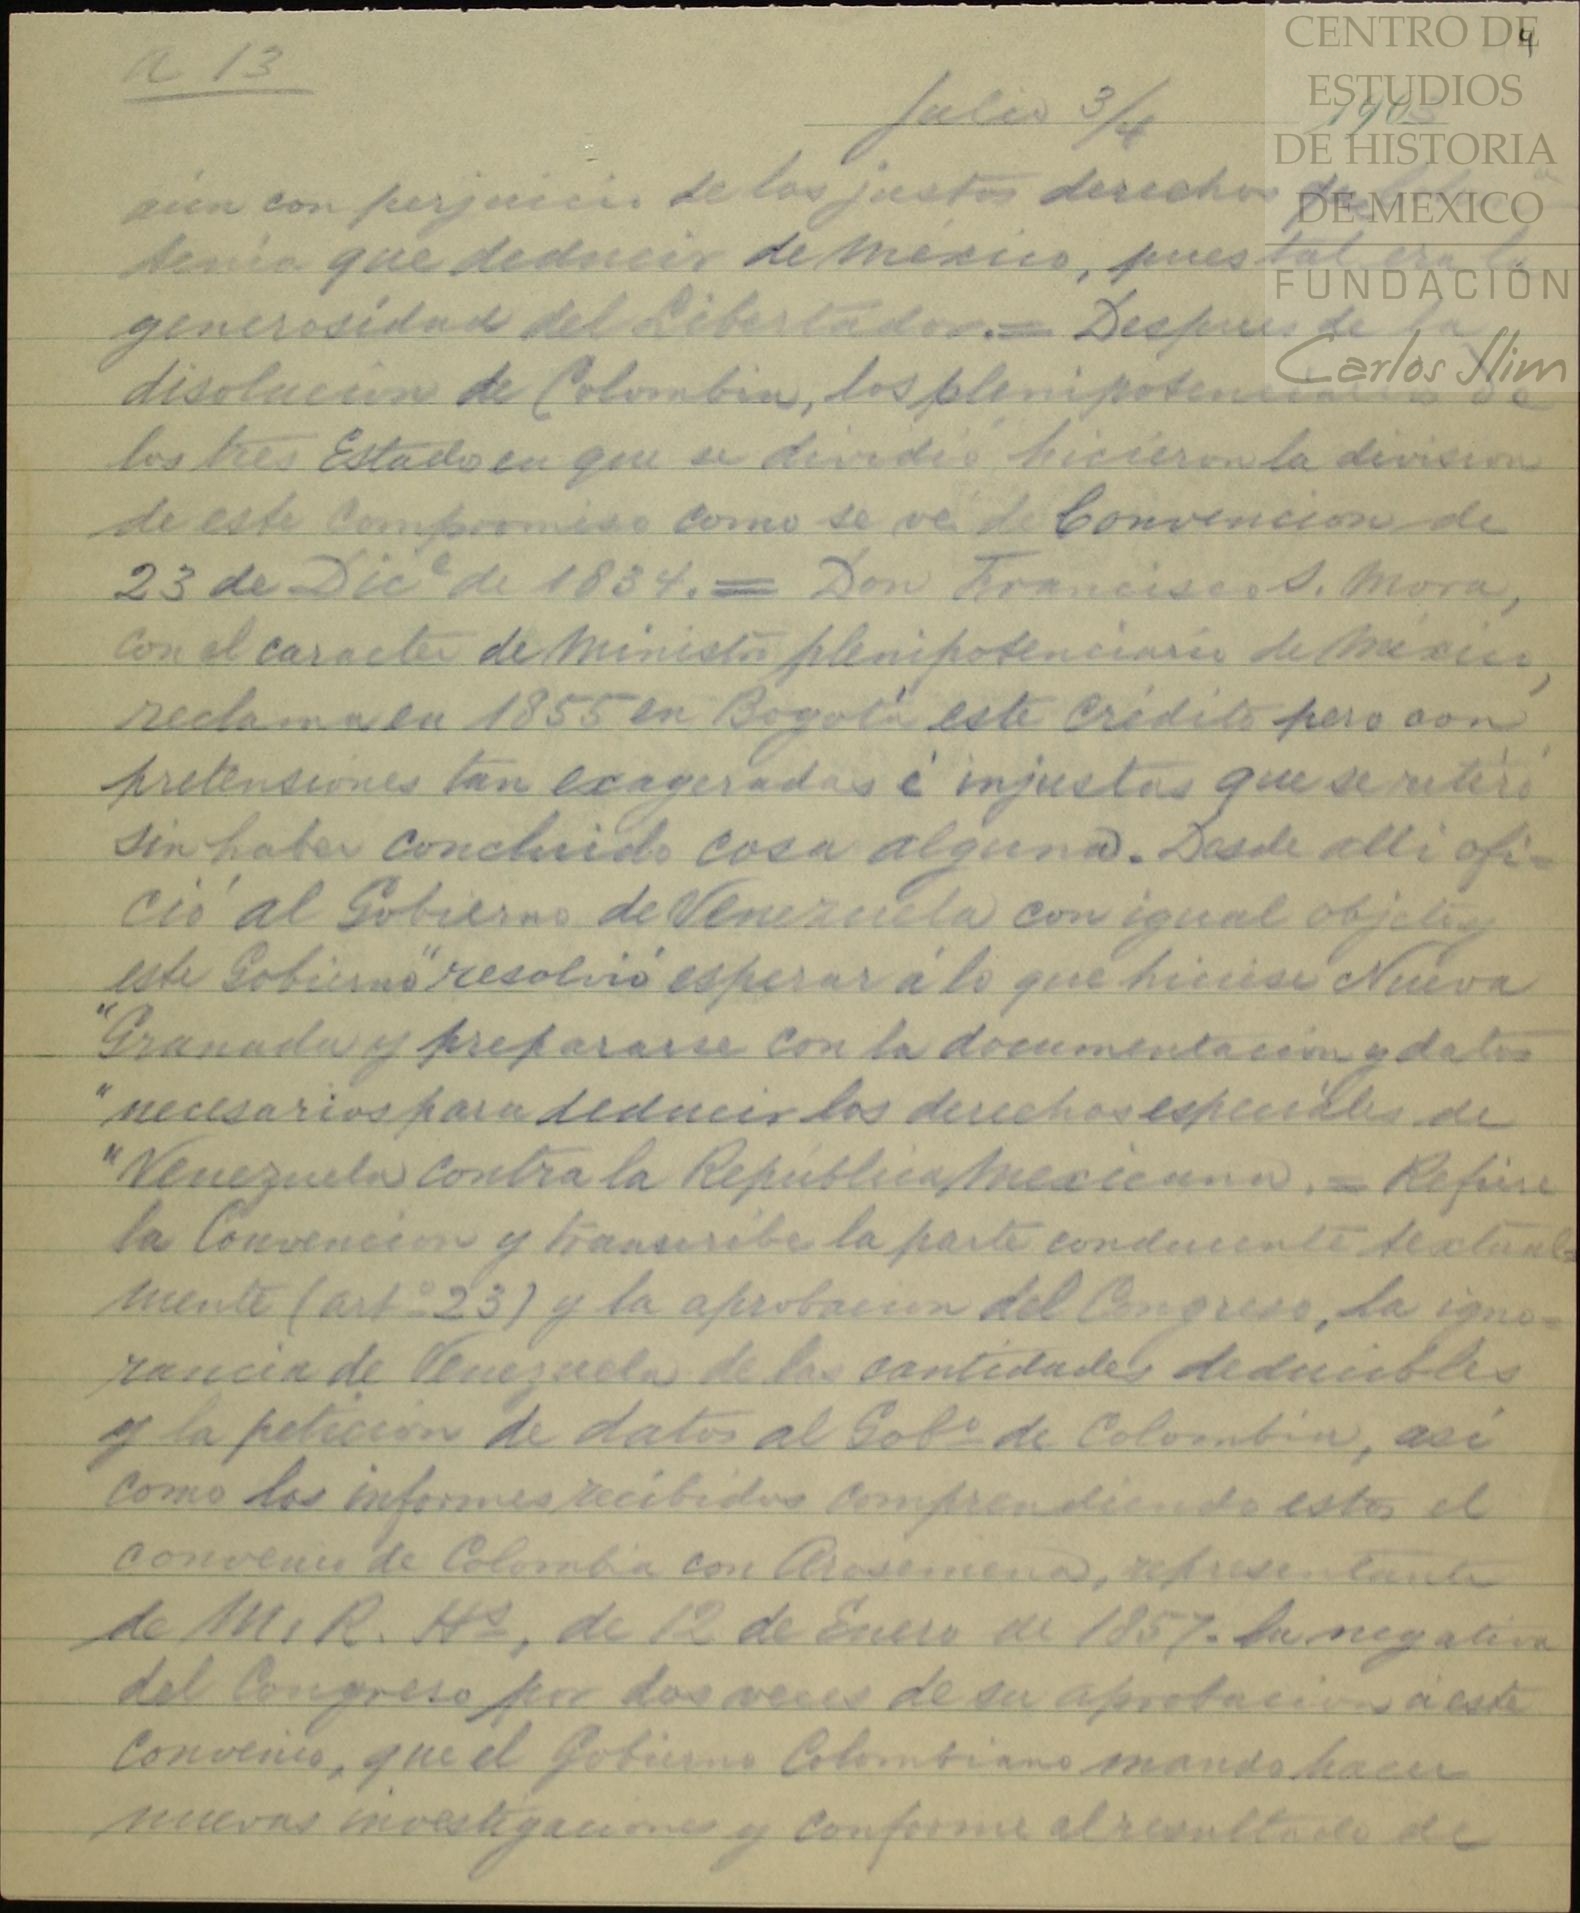 a 13
4
CENTRO DE
ESTUDIOS
DE HISTORIA
DE MEXICO
FUNDACIÓN
Carlos Slim
Julio 3/4 1905
aún con perjuicio de los justos derechos que
tenía que deducir de México, pues tal era la
generosidad del Libertador.= Despues de la
disolucion de Colombia, los plenipotenciarios de
los tres Estados en que se dividió hicieron la division
de este compromiso como se vé de Convencion de
23 de Dice de 1834.= Don Francisco S. Mora,
con el caracter de Ministro plenipotenciario de México,
reclama en 1855 en Bogotá este crédito pero con
pretensiones tan exageradas é injustas que se retiró
sin haber concluido cosa alguna. Desde alli ofi=
ció al Gobierno de Venezuela con igual objeto y
este Gobierno "resolvió esperar á lo que hiciese Nueva
"Granada y prepararse con la documentacion y datos
"necesarios para deducir los derechos especiales de
"Venezuela contra la República Mexicana.= Refiere
la Convencion y transcribe la parte conducente textual=
mente (arto 23) y la aprobacion del Congreso, la igno=
rancia de Venezuela de las cantidades deducibles
y la peticion de datos al Gobo de Colombia, asi
como los informes recibidos comprendiendo estos el
convenio de Colombia con Arosemena, representante
de M. R. Hs, de 12 de Enero de 1857. La negativa
del Congreso por dos veces de su aprobacion á este
convenio, que el Gobierno Colombiano mandó hacer
nuevas investigaciones y conforme al resultado de